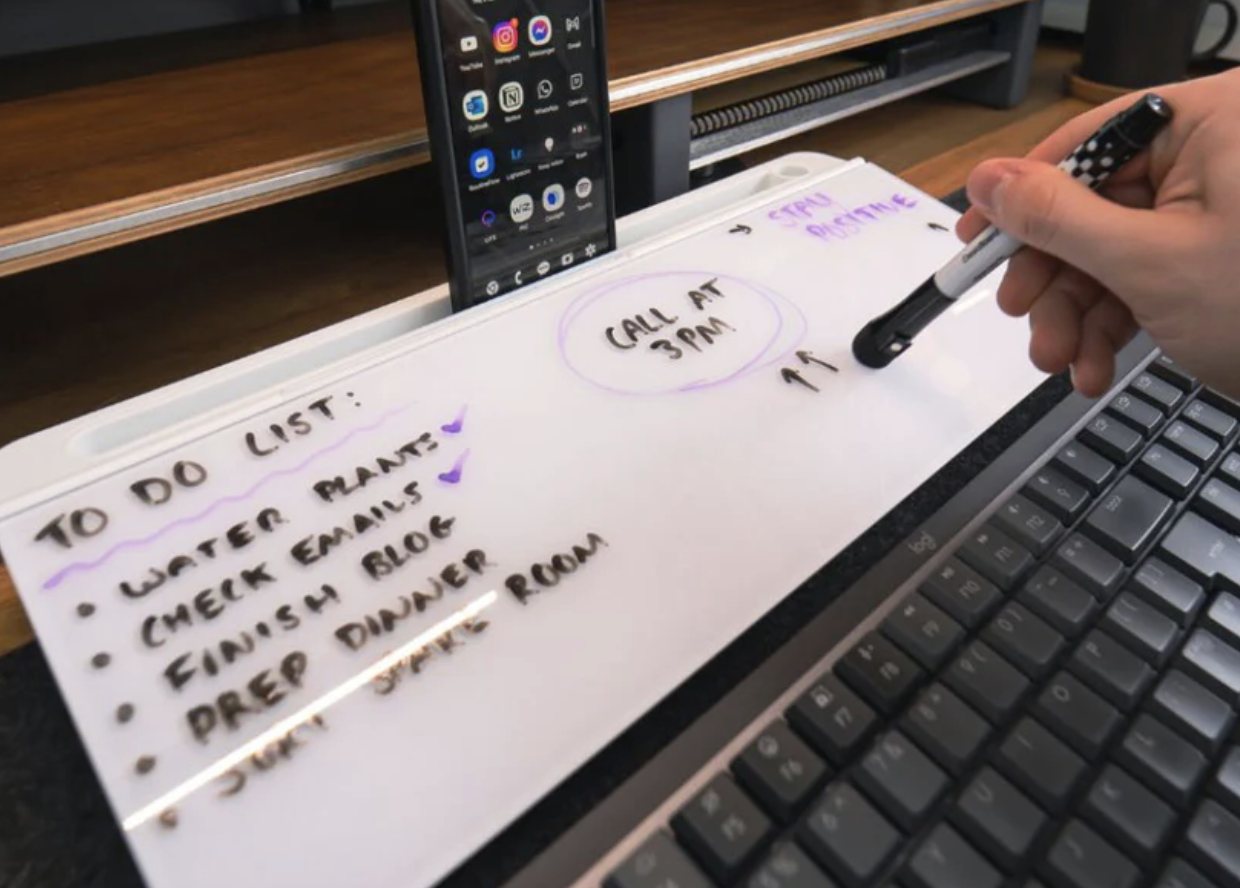 YouTube
Instagram
Messenger
Gmail
Outlook
Notion
WhatsApp
Calendar
Lightroom
Lr
WiZ
Spotify
STAY
POSITIVE
CALL AT
3PM
TO DO LIST:
• WATER PLANTS ✓
• CHECK EMAILS ✓
• FINISH BLOG
• PREP DINNER
• SORT SPARE ROOM
logi
F12
F11
F10
F9
F8
F7
F6
F5
P
O
I
U
L
K
J
Y